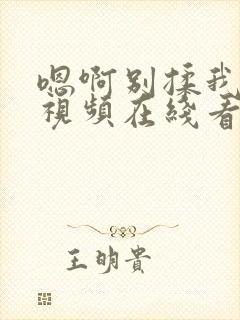 嗯啊别揉我
視頻在綫看
王明貴